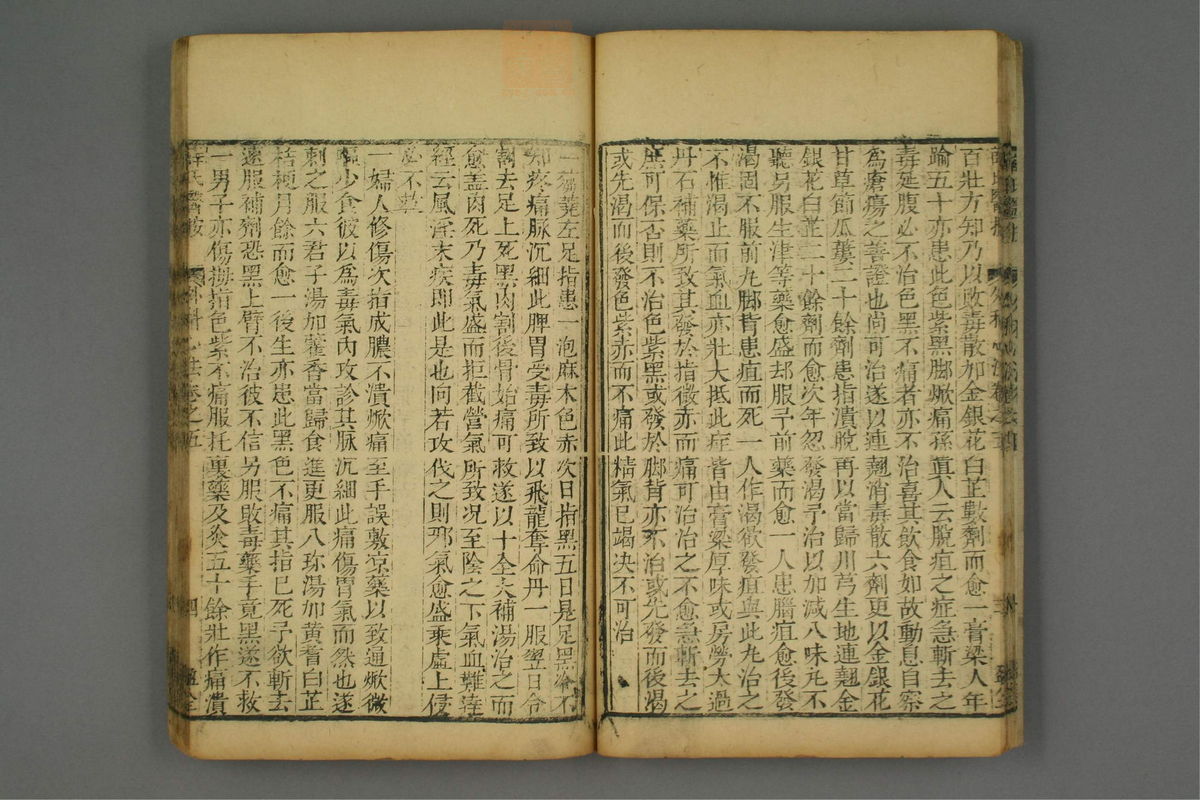 百壯方知乃以敗毒散加金銀花白芷數劑而愈一膏梁人年
踰五十亦患此色紫黑脚焮痛孫眞人云脫疽之症急斬去之
毒延腹必不治色黑不痛者亦不治喜其飲食如故動息自察
爲瘡瘍之善證也尚可治遂以連翹消毒散六劑更以金銀花
甘草節瓜蔞二十餘劑患指潰脫再以當歸川芎生地連翹金
銀花白芷二十餘劑而愈次年忽發渴予治以加減八味丸不
聽另服生津等藥愈盛却服予前藥而愈一人患腦疽愈後發
渴固不服前丸脚背患疽而死一人作渴欲發疽與此丸治之
不惟渴止而氣血亦壯大抵此症皆由膏梁厚味或房勞太過
丹石補藥所致其發於指微赤而痛可治治之不愈急斬去之
庶可保否則不治色紫黑或發於脚背亦不治或先發而後渴
或先渴而後發色紫赤而不痛此精氣已竭决不可治
一獮蕘左足指患一泡麻木色赤次日指黑五日是足黑冷不
知疼痛脉沉細此脾胃受毒所致以飛龍奪命丹一服翌日令
割去足上死黑肉割後骨始痛可救遂以十全大補湯治之而
愈盖肉死乃毒氣盛而拒截營氣所致况至陰之下氣血難達
經云風淫末疾即此是也向若攻伐之則邪氣愈盛乘虛上侵
必不救
一婦人修傷次指成膿不潰焮痛至手誤敷凉藥以致通焮微
嘔少食彼以爲毒氣内攻診其脉沉細此痛傷胃氣而然也遂
刺之服六君子湯加藿香當歸食進更服八珍湯加黄耆白芷
桔梗月餘而愈一後生亦患此黑色不痛其指已死予欲斬去
速服補劑恐黑上臂不治彼不信另服敗毒藥手竟黑遂不救
一男子亦傷拇指色紫不痛服托裏藥及灸五十餘壯作痛潰
薛氏醫按 外科心法卷之五 四